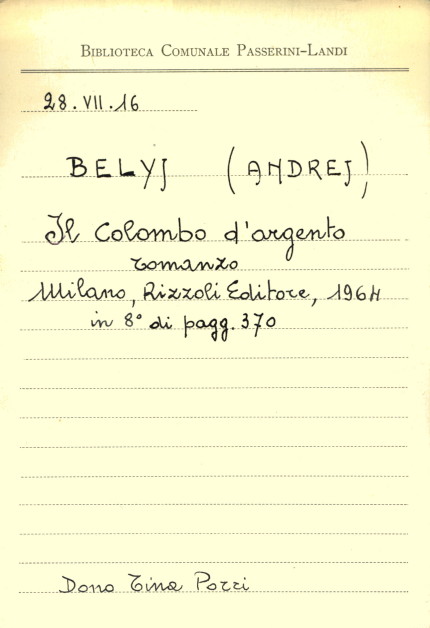 BIBLIOTECA COMUNALE PASSERINI-LANDI
28.VII.16
BELYJ (ANDREJ)
Il Colombo d'argento
romanzo
Milano, Rizzoli Editore, 1964
in 8° di pagg. 370
Dono Tina Pozzi